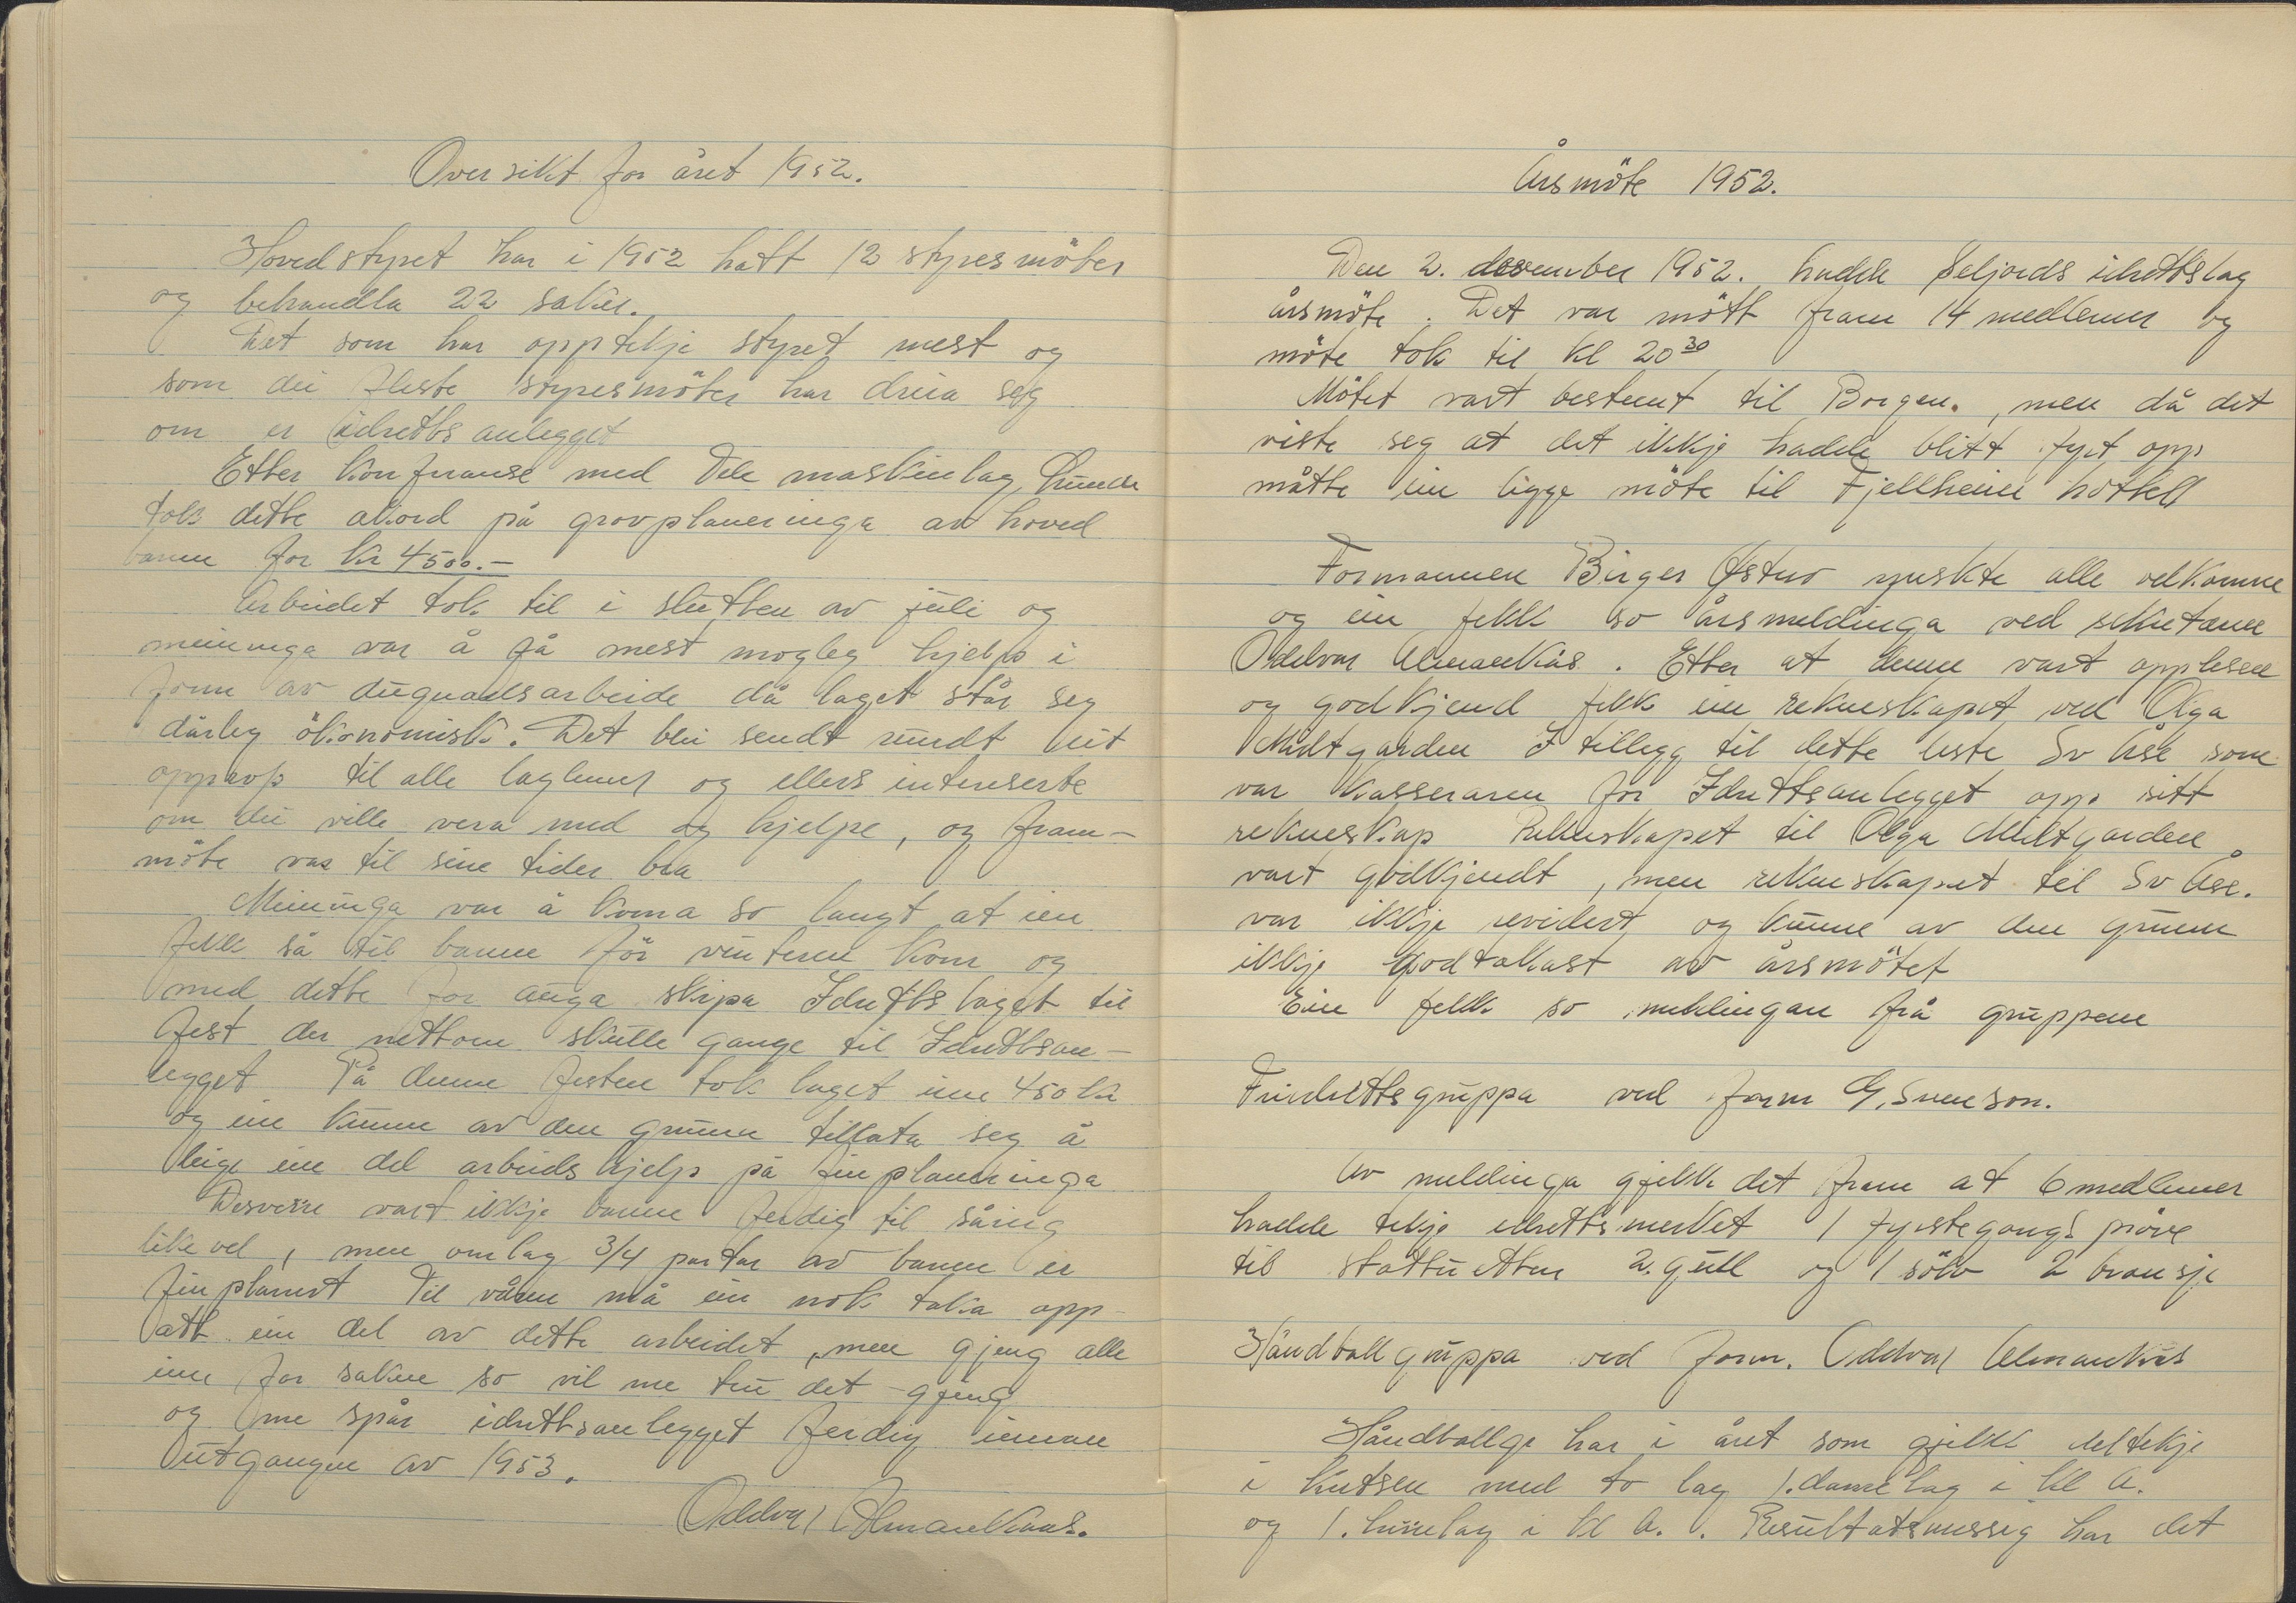 Oversikt for året 1952.
Hovedstyret har i 1952 hatt 12 styresmöter
og behandla 22 saker.
Det som har opptekje styret mest og
som dei fleste styresmöter har dreia seg
om er idrettsanlegget
Etter konferanse med Tele maskinlag, Lunde
tok dette akord på grovplaneringa av hoved
banen for kr 4500.-
Arbeidet tok til i slutten av juli og
meininga var å få mest mogleg hjelp i
form av dugnadsarbeide då laget står seg
dårleg ökonomisk. Det blei sendt rundt eit
opprop til alle laglemer og ellers interserte
om dei ville vera med og hjelpe, og fram-
möte var til sine tider bra
Meininga var å koma so langt at ein
fekk så til banen för vinteren kom og
med dette for auga skipa Idrettslaget til
fest der nettoen skulle gange til Idrettsan-
legget På denne festen tok laget inn 450 kr
og ein kunne av den grunn tillata seg å
leige ein del arbeidshjelp på finplaneringa
Desverre vart ikkje banen ferdig til såing
likevel, men omlag 3/4 partar av banen er
finplanert Til våren må ein nok taka opp-
att ein del av dette arbeidet, men gjeng alle
inn for saken so vil me tru det gjeng
og me spår idrettsanlegget ferdig innan
utgangen av 1953.
Oddvar Almankaas.
Årsmöte 1952.
Den 2. desember 1952. hadde Seljords idrettslag
årsmöte. Det var mött fram 14 medlemer og
möte tok til kl 20 30
Mötet vart bestemt til Borgen, men då det
viste seg at det ikkje hadde blitt fyrt opp
måtte ein ligge möte til Fjellheim hottell
Formannen Birger Østerö ynskte alle velkomne
og ein fekk so årsmeldinga ved sekretæren
Oddvar Almankås. Etter at denne vart opplesen
og godkjend fekk ein rekneskapet ved Olga
Midtgarden I tillegg til dette leste Sv Åse som
var kasseraren for Idrettsanlegget opp sitt
rekneskap Rekneskapet til Olga Midtgarden
vart godkjendt, men rekneskapet til Sv Åse.
var ikkje revidert og kunne av den grunn
ikkje godtakast av årsmötet
Ein fekk so meldingan frå gruppene
Friidrettsgruppa ved form G. Svenson.
Av meldinga gjekk det fram at 6 medlemer
hadde tekje idrettsmerket 1 fyrstegangs pröve
til stattuetten 2. gull og 1 sölv 2 bronsje
Håndballgruppa ved form. Oddvar Almankås
Håndballgr har i året som gjekk deltekje
i kretsen med to lag 1. damelag i kl A.
og 1. herrelag i kl A. Resultatsmessig har det